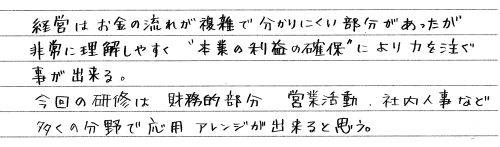 経営はお金の流れが複雑で分かりにくい部分があったが
非常に理解しやすく〝本業の利益の確保〟により力を注ぐ
事が出来る。
今回の研修は 財務的部分 営業活動、社内人事など
多くの分野で応用 アレンジが出来ると思う。